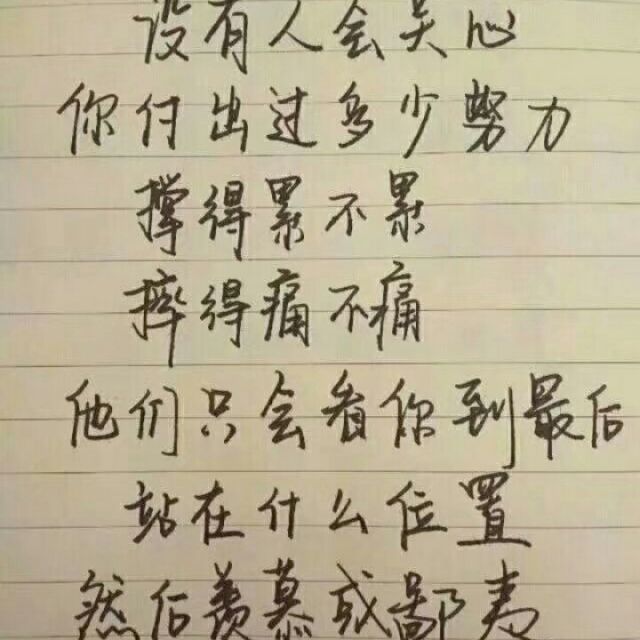 没有人会关心
你付出过多少努力
撑得累不累
摔得痛不痛
他们只会看你到最后
站在什么位置
然后羡慕或鄙夷